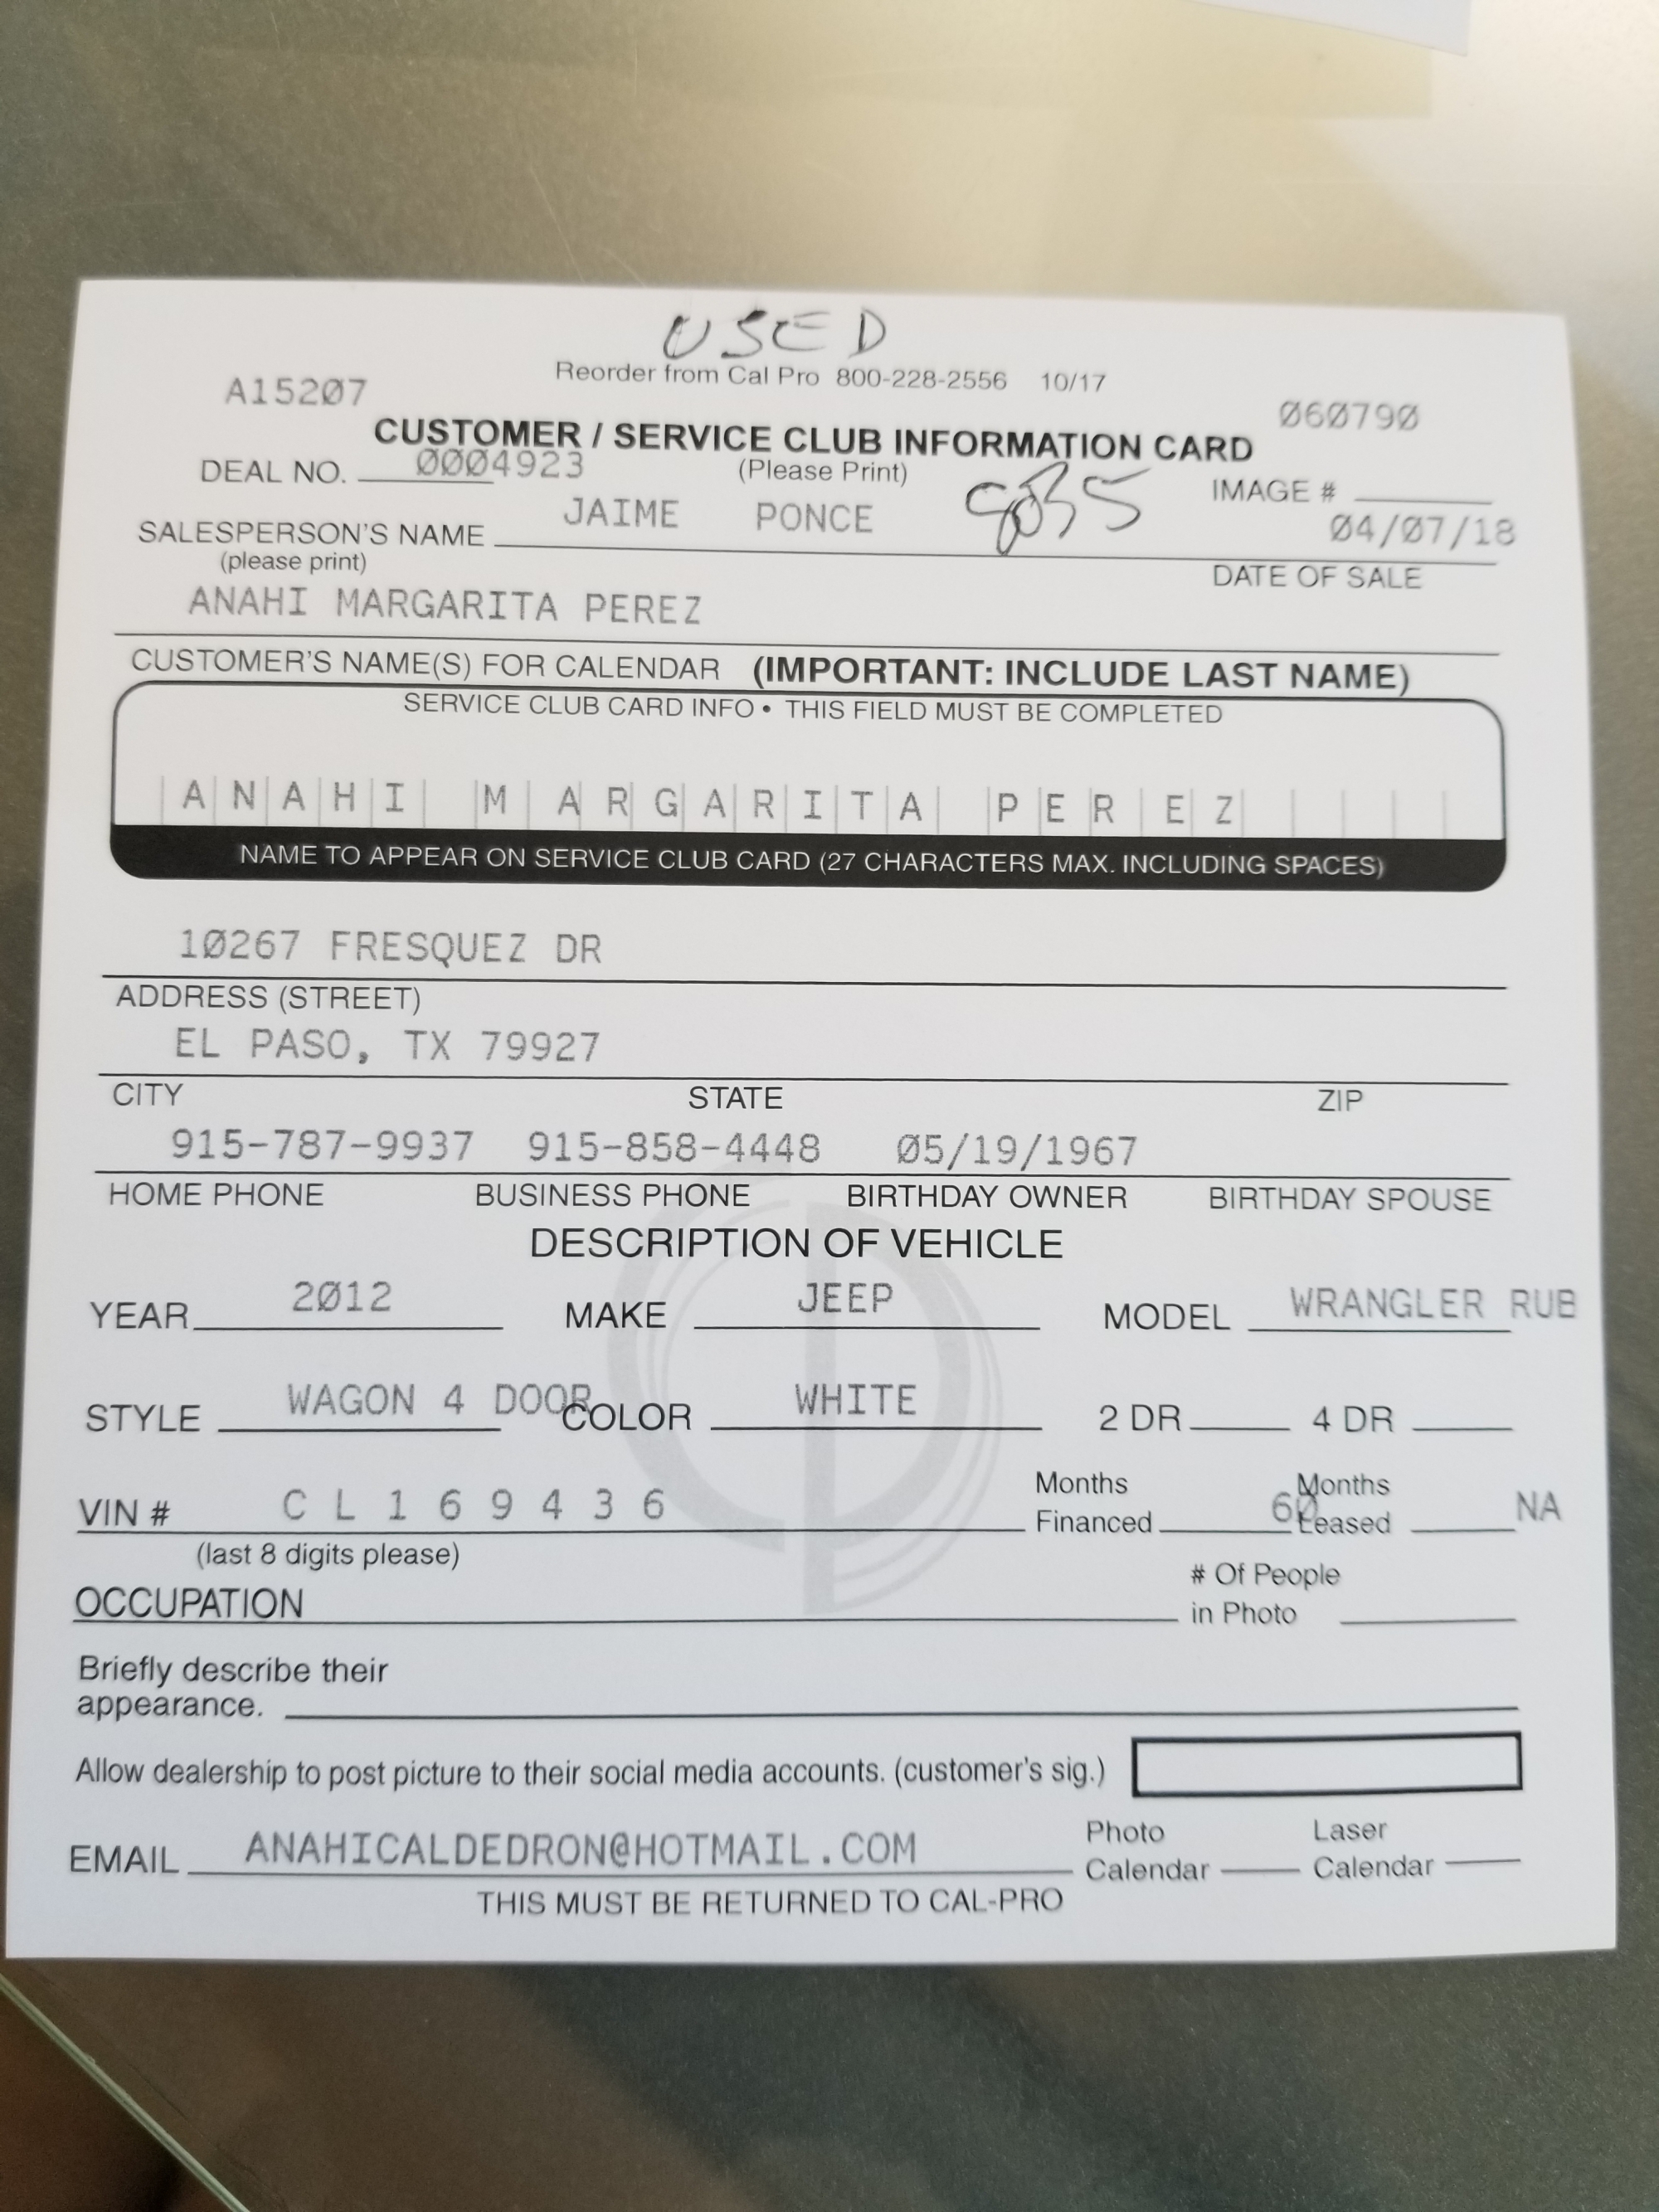 USED
Reorder from Cal Pro 800-228-2556 10/17
A15207 060790
CUSTOMER / SERVICE CLUB INFORMATION CARD
DEAL NO. 0004923 (Please Print) IMAGE #
SALESPERSON'S NAME JAIME PONCE 04/07/18
(please print) DATE OF SALE
ANAHI MARGARITA PEREZ
CUSTOMER'S NAME(S) FOR CALENDAR (IMPORTANT: INCLUDE LAST NAME)
SERVICE CLUB CARD INFO • THIS FIELD MUST BE COMPLETED
ANAHI MARGARITA PEREZ
NAME TO APPEAR ON SERVICE CLUB CARD (27 CHARACTERS MAX. INCLUDING SPACES)
10267 FRESQUEZ DR
ADDRESS (STREET)
EL PASO, TX 79927
CITY STATE ZIP
915-787-9937 915-858-4448 05/19/1967
HOME PHONE BUSINESS PHONE BIRTHDAY OWNER BIRTHDAY SPOUSE
DESCRIPTION OF VEHICLE
YEAR 2012 MAKE JEEP MODEL WRANGLER RUB
STYLE WAGON 4 DOOR COLOR WHITE 2 DR 4 DR
VIN # CL169436 Months Financed 60 Months Leased NA
(last 8 digits please)
OCCUPATION # Of People in Photo
Briefly describe their
appearance.
Allow dealership to post picture to their social media accounts. (customer's sig.)
EMAIL ANAHICALDEDRON@HOTMAIL.COM Photo Calendar Laser Calendar
THIS MUST BE RETURNED TO CAL-PRO